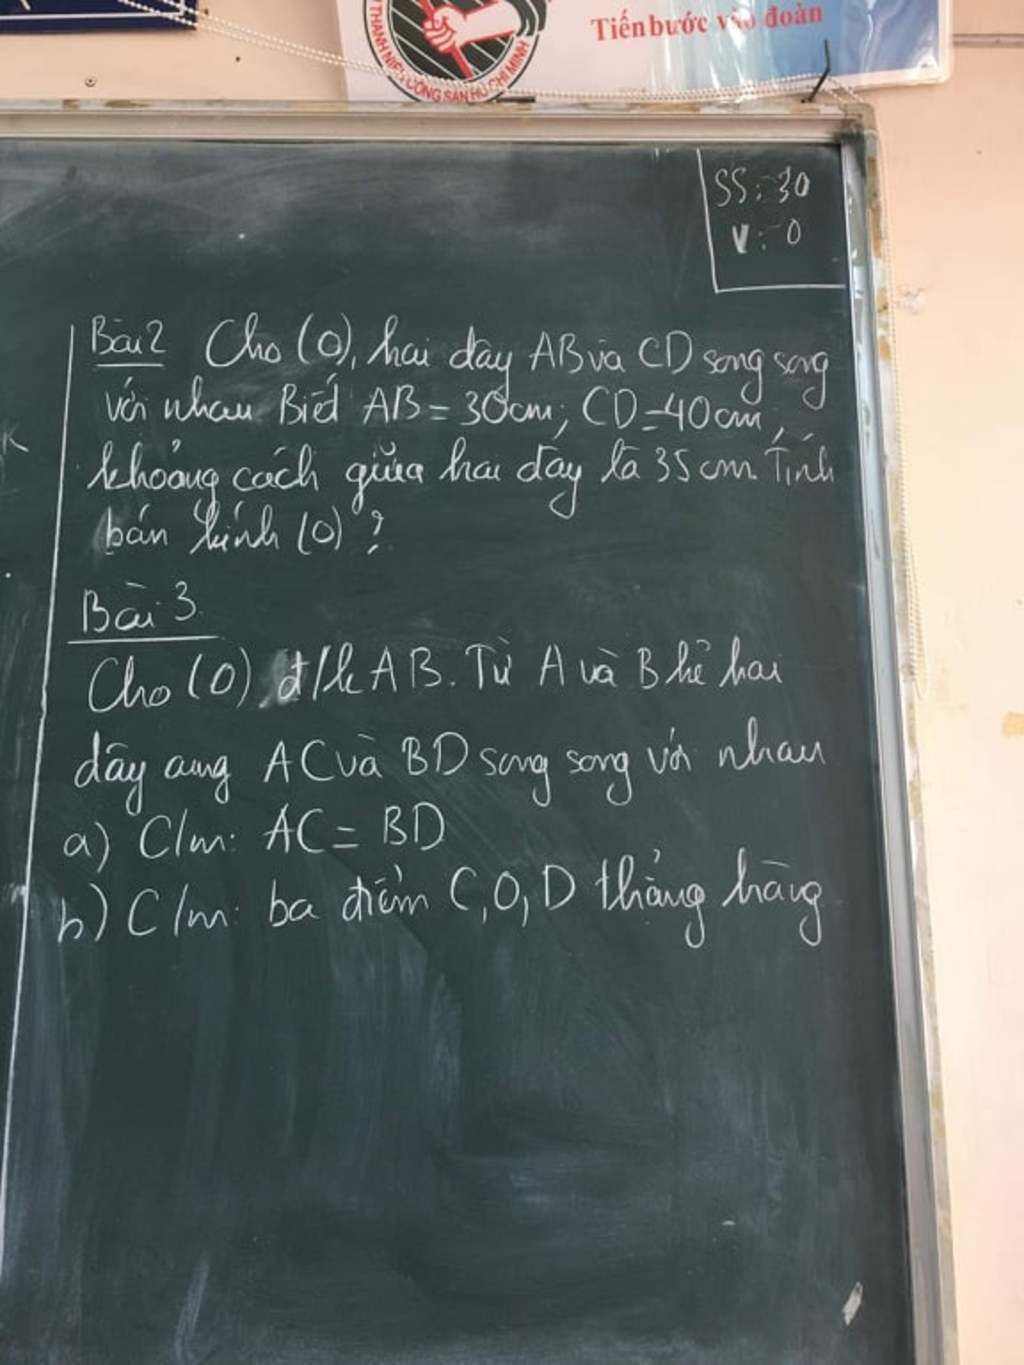 THANH NIÊN CỘNG SẢN HỒ CHÍ MINH
Tiến bước vào đoàn
SS: 30
V: 0
Bài 2 Cho (O), hai dây AB và CD song song
với nhau Biết AB = 30cm; CD = 40cm;
khoảng cách giữa hai dây là 35 cm. Tính
bán kính (O)?
Bài 3.
Cho (O) đ/k AB. Từ A và B kẻ hai
dây cung AC và BD song song với nhau
a) C/m: AC = BD
b) C/m: ba điểm C, O, D thẳng hàng